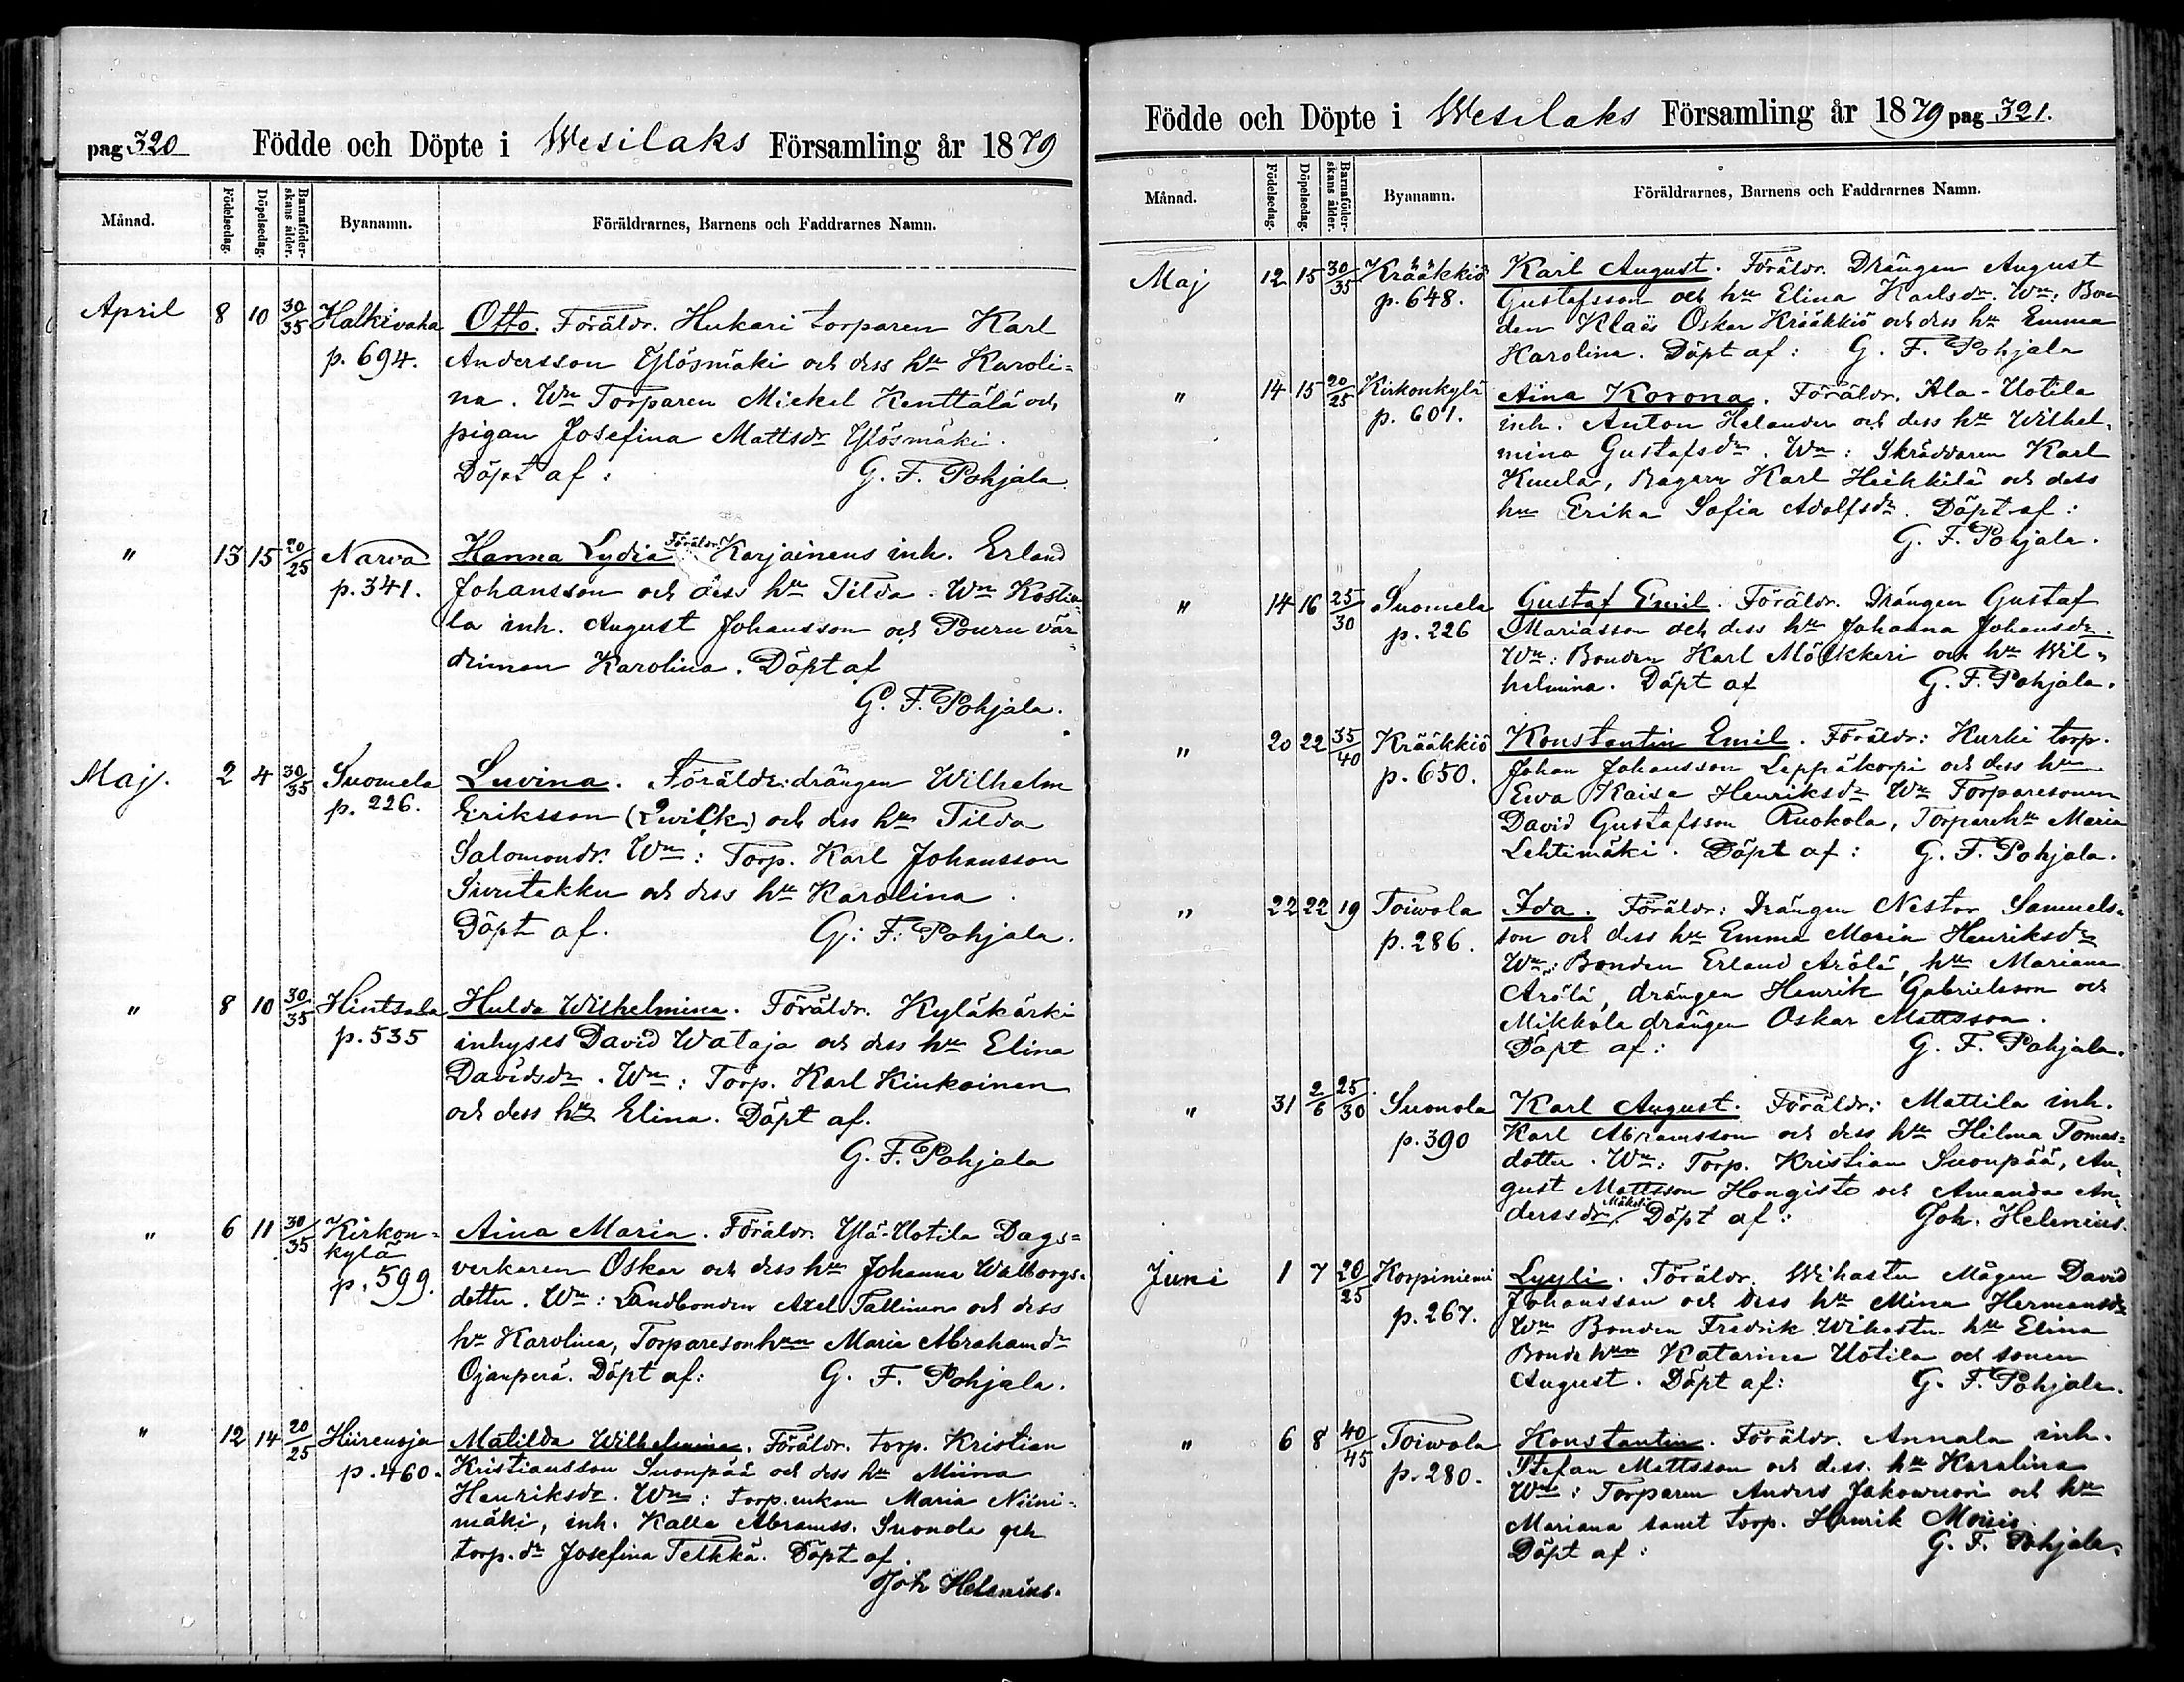 pag 320 Födde och Döpte i Wesilaks Församling år 1879
Månad. Födelsedag. Döpelsedag. Barnaföderskans ålder. Byanamn. Föräldrarnes, Barnens och Faddrarnes Namn.
April 8 10 30/35 Halkivaha Otto. Föräldr. Hukari torparen Karl
p. 694. Andersson Ylösmäki och dess hu Karoli=
na. Wn Torparen Mickel Kenttälä och
pigan Josefina Mattsdr Ylösmäki.
Döpt af: G. F. Pohjala
" 13 15 20/25 Narva Hanna Lydia Föräldr. Karjainens inh. Erland
p. 341. Johansson och dess hu Tilda. Wn Kostia
la inh. August Johansson och Pouru vär
dinnan Karolina. Döpt af
G. F. Pohjala.
Maj. 2 4 30/35 Suomela Luvina. Föräldr: drängen Wilhelm
p. 226. Eriksson (Qvick) och dess hu Tilda
Salomondr. Wn: Torp. Karl Johansson
och dess hu Karolina.
Döpt af. G: F: Pohjala.
" 8 10 30/35 Hintsala Hulda Wilhelmina. Föräldr. Kyläkärki
p. 535 inhyses David Wataja och dess hu Elina
Davidsdr. Wn: Torp. Karl Kinkainen
och dess hu Elina. Döpt af.
G. F. Pohjala
" 6 11 30/35 Kirkon= Aina Maria. Föräldr. Ylä-Uotila Dags=
kylä verkaren Oskar och dess hu Johanna Walborgs-
p. 599. dotter. Wn: Landbonden Axel Tallinen och dess
hu Karolina, Torparesonhun Maria Abrahamdr
Ojanperä. Döpt af: G. F. Pohjala.
" 12 14 20/25 Hiirenoja Matilda Wilhelmina. Föräldr. torp. Kristian
p. 460. Kristiansson Suonpää och dess hu Miina
Henriksdr. Wn: torp. enkan Maria Niini=
mäki, inh. Kalle Abramss. Suonola och
torp.dr Josefina Telkkä. Döpt af.
Joh Helenius.
Födde och Döpte i Wesilaks Församling år 1879 pag 321.
Månad. Födelsedag. Döpelsedag. Barnaföderskans ålder. Byanamn. Föräldrarnes, Barnens och Faddrarnes Namn.
Maj 12 15 30/35 Krääkkiö Karl August. Föräldr. Drängen August
p. 648. Gustafsson och hu Elina Karlsdr. Wn: Bon
den Klaës Oskar Krääkkiö och dess hu Emma
Karolina. Döpt af: G. F. Pohjala
" 14 15 20/25 Kirkonkylä Aina Korona. Föräldr. Ala-Uotila
p. 601. inh. Anton Helander och dess hu Wilhel,
mina Gustafsdr. Wn: Skräddaren Karl
Kuula, Bagarn Karl Heikkilä och dess
hu Erika Sofia Adolfsdr. Döpt af:
G. F. Pohjala.
" 14 16 25/30 Suomela Gustaf Emil. Föräldr. Drängen Gustaf
p. 226 Mariasson och dess hu Johanna Johansdr.
Wn: Bonden Karl Mölkkeri och hu Wil-
helmina. Döpt af G. F. Pohjala.
" 20 22 35/40 Krääkkiö Konstantin Emil. Föräldr: Kurki torp.
p. 650. Johan Johansson Leppäkorpi och dess hu
Ewa Kaisa Henriksdr Wn Torparesonen
David Gustafsson Ruokola, Torparehu Maria
Lehtimäki. Döpt af: G. F. Pohjala.
" 22 22 19 Toiwola Ida. Föräldr: Drängen Nestor Samuels-
p. 286. son och dess hu Emma Maria Henriksdr
Wn: Bonden Erland Arölä, hu Mariana
Arölä, drängen Henrik Gabrielsson och
Mikkola drängen Oskar Mattsson.
Döpt af: G. F. Pohjala.
" 31 2/6 25/30 Suonola Karl August. Föräldr: Mattila inh.
p. 390 Karl Abramsson och dess hu Hilma Tomas=
dotter. Wn: Torp. Kristian Suonpää, Au,
gust Mattsson Hongisto och Amanda An,
derssdr Döpt af: Joh. Helenius.
Juni 1 7 20/25 Korpiniemi Lyyli. Föräldr. Wihastu Mågen David
p. 267. Johansson och dess hu Mina Hermansdr
Wn Bonden Fredrik Wihastu hu Elina
Bonde hun Katarina Uotila och sonen
August. Döpt af: G. F. Pohjala.
" 6 8 40/45 Toiwola Konstantin. Föräldr. Annala inh.
p. 280. Stefan Mattsson och dess hu Karolina
Wn: Torparen Anders och hu
Mariana samt torp. Henrik Moisio.
Döpt af: G. F. Pohjala.